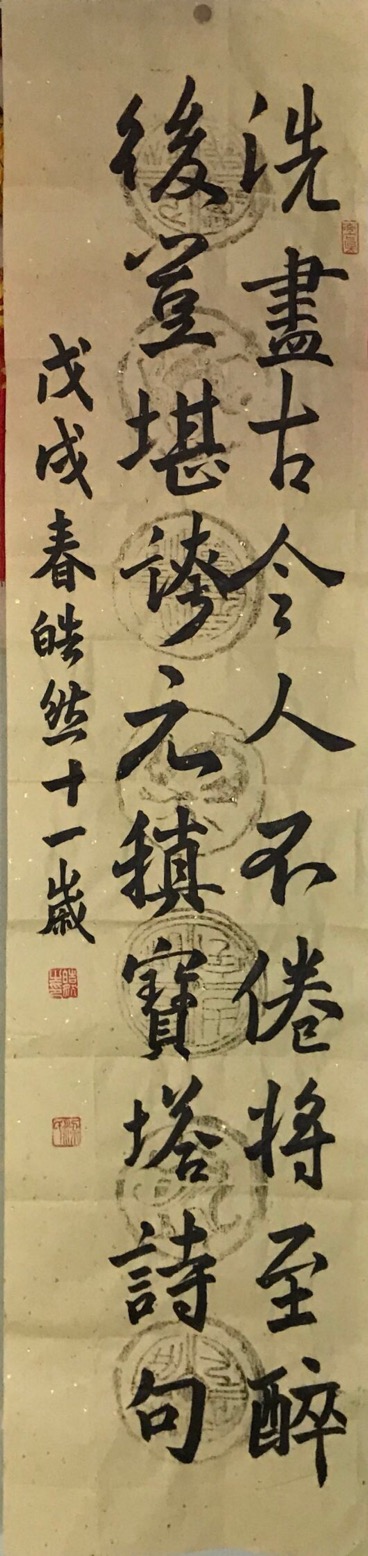 洗盡古今人不倦將至醉
後豈堪誇元稹寶塔詩句
戊戌春皓然十一歲